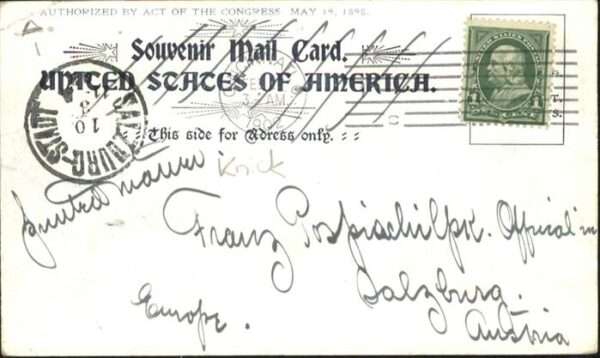 AUTHORIZED BY ACT OF THE CONGRESS, MAY 19, 1898.
Souvenir Mail Card.
UNITED STATES OF AMERICA.
This side for Adress only.
SALZBURG-STADT
10
3
AM
ONE CENT
S.
Knick
Franz Pospischil pk. Official in
Salzburg.
Europe.
Austria